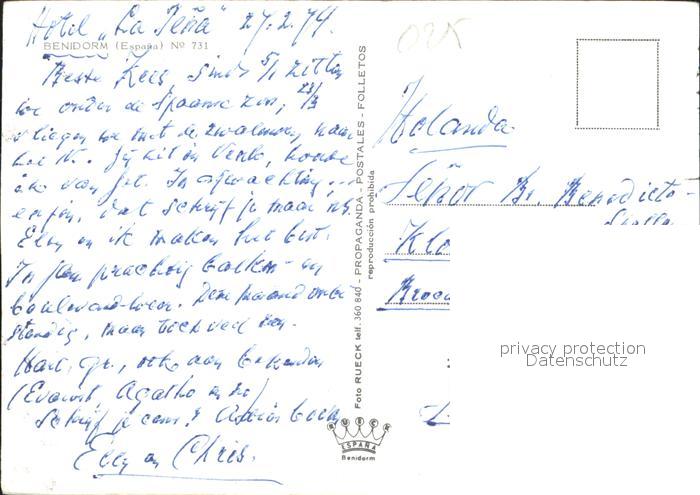 Hotel "La Peña" 27.2.74.
BENIDORM (España) Nº 731
Beste Kees, sinds 5/1 zitten
we onder de Spaanse zon, 23/3
vliegen we met de zwaluwen naar
het N. Jij zit in Venlo, hoorde
ik van In afwachting...
enfin, dat schrijf je maar
Elly en ik maken het best.
In prachtig balkon- en
boulevard-weer. Deze maand onbe
standig, maar toch veel zon.
Hart. gr., ook aan bekenden
(Evarist, Agatho en zo)
Schrijf je eens? Adios
Elly en Chris.
Foto RUECK telf. 360 840 - PROPAGANDA - POSTALES - FOLLETOS
reproducción prohibida
RUECK
ESPAÑA
Benidorm
025
Holanda
Señor Br. Benedicto-
Klo
Broe
privacy protection
Datenschutz